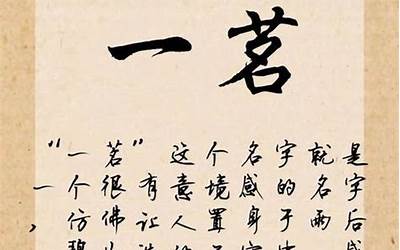 一茗
“一茗”这个名字就是
一个很有意境感的名字
，仿佛让人置身于雨后